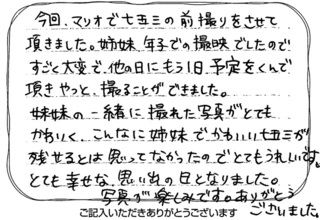 今回、マリオで七五三の前撮りをさせて
頂きました。姉妹、年子での撮影でしたので
すごく大変で、他の日にもう1日、予定をくんで
頂きやっと、撮ることができました。
姉妹の一緒に撮れた写真がとても
かわいく、こんなに姉妹でかわいい七五三が
残せるとは思ってなかったのでとてもうれしいです。
とても幸せな、思い出の日となりました。
写真が楽しみです。ありがとう
ございました。
ご記入いただきありがとうございます